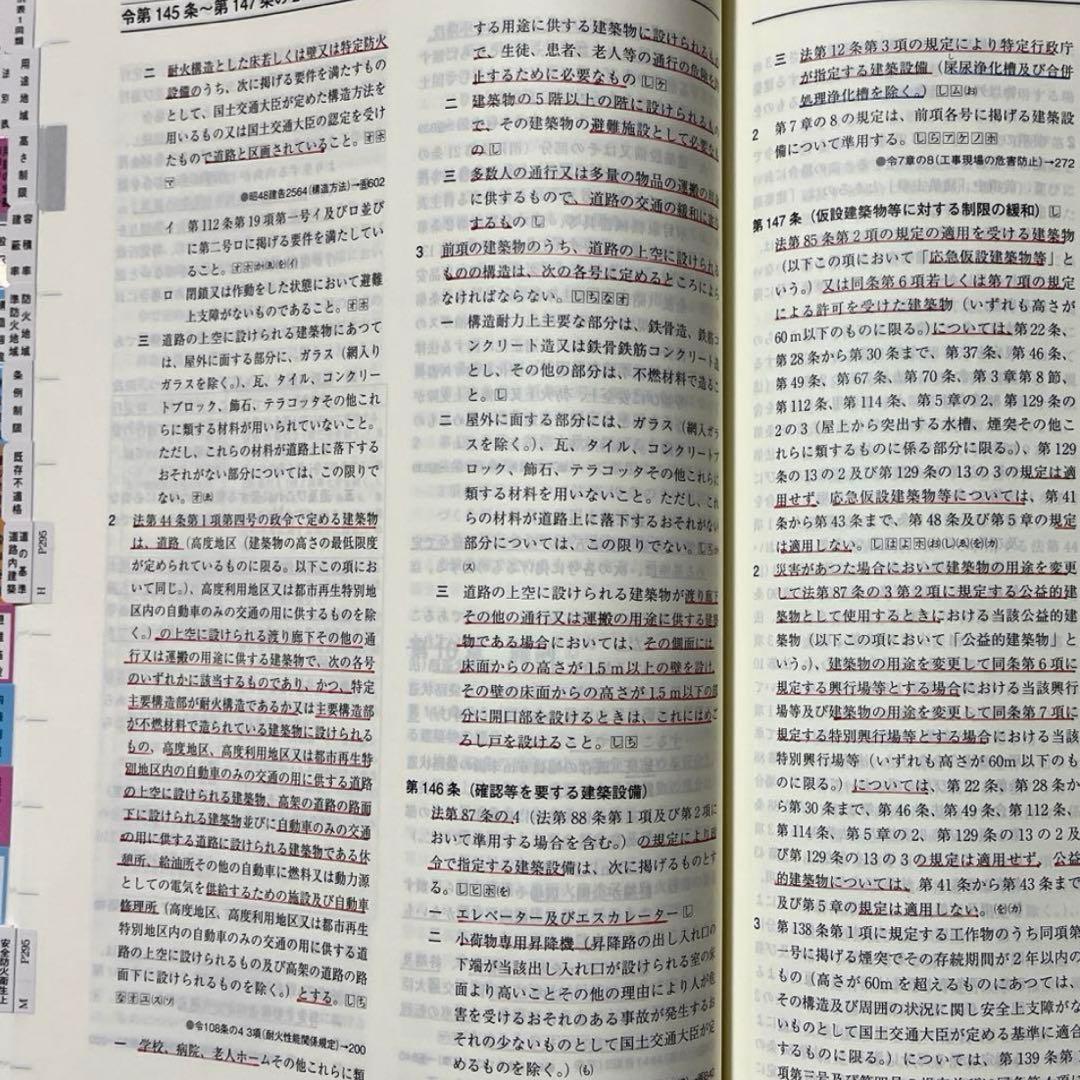 令第145条～第147条の
二 耐火構造とした床若しくは壁又は特定防火
設備のうち、次に掲げる要件を満たすもの
として、国土交通大臣が定めた構造方法を
用いるもの又は国土交通大臣の認定を受け
たもので道路と区画されていること。
●昭48建告2564(構造方法)→告602
イ 第112条第19項第一号イ及びロ並び
に第二号ロに掲げる要件を満たしてい
ること。
ロ 閉鎖又は作動をした状態において避難
上支障がないものであること。
三 道路の上空に設けられる建築物にあつて
は、屋外に面する部分に、ガラス（網入り
ガラスを除く。）、瓦、タイル、コンクリー
トブロック、飾石、テラコッタその他これ
らに類する材料が用いられていないこと。
ただし、これらの材料が道路上に落下する
おそれがない部分については、この限りで
ない。
2 法第44条第1項第四号の政令で定める建築物
は、道路（高度地区（建築物の高さの最低限度
が定められているものに限る。以下この項にお
いて同じ。）、高度利用地区又は都市再生特別地
区内の自動車のみの交通の用に供するものを除
く。）の上空に設けられる渡り廊下その他の通
行又は運搬の用途に供する建築物で、次の各号
のいずれかに該当するものであり、かつ、特定
主要構造部が耐火構造であるか又は主要構造部
が不燃材料で造られている建築物に設けられる
もの、高度地区、高度利用地区又は都市再生特
別地区内の自動車のみの交通の用に供する道路
の上空に設けられる建築物、高架の道路の路面
下に設けられる建築物並びに自動車のみの交通
の用に供する道路に設けられる建築物である休
憩所、給油所その他の自動車に燃料又は動力源
としての電気を供給するための施設及び自動車
修理所（高度地区、高度利用地区又は都市再生
特別地区内の自動車のみの交通の用に供する道
路の上空に設けられるもの及び高架の道路の路
面下に設けられるものを除く。）とする。
●令108条の4 3項(耐火性能関係規定)→200
一 学校、病院、老人ホームその他これらに類
する用途に供する建築物に設けられるもの
で、生徒、患者、老人等の通行の危険を
止するために必要なもの
二 建築物の5階以上の階に設けられるもの
で、その建築物の避難施設として必要な
の
三 多数人の通行又は多量の物品の運搬の用途
に供するもので、道路の交通の緩和に寄与
するもの
3 前項の建築物のうち、道路の上空に設けられる
ものの構造は、次の各号に定めるところによら
なければならない。
一 構造耐力上主要な部分は、鉄骨造、鉄筋
ンクリート造又は鉄骨鉄筋コンクリート造
とし、その他の部分は、不燃材料で造るこ
と。
二 屋外に面する部分には、ガラス（網入ガラ
スを除く。）、瓦、タイル、コンクリートブ
ロック、飾石、テラコッタその他これらに
類する材料を用いないこと。ただし、これ
らの材料が道路上に落下するおそれがない
部分については、この限りでない。
三 道路の上空に設けられる建築物が渡り廊下
その他の通行又は運搬の用途に供する建築
物である場合においては、その側面には
床面からの高さが1.5m以上の壁を設け、
その壁の床面からの高さが1.5m以下の部
分に開口部を設けるときは、これにはめご
ろし戸を設けること。
第146条（確認等を要する建築設備）
法第87条の4（法第88条第1項及び第2項に
おいて準用する場合を含む。）の規定により政
令で指定する建築設備は、次に掲げるものとす
る。
一 エレベーター及びエスカレーター
二 小荷物専用昇降機（昇降路の出し入れ口の
下端が当該出し入れ口が設けられる室の床
面より高いことその他の理由により人が危
害を受けるおそれのある事故が発生するお
それの少ないものとして国土交通大臣が定
めるものを除く。）
三 法第12条第3項の規定により特定行政庁
が指定する建築設備（屎尿浄化槽及び合併
処理浄化槽を除く。）
2 第7章の8の規定は、前項各号に掲げる建築設
備について準用する。
●令7章の8(工事現場の危害防止)→272
第147条（仮設建築物等に対する制限の緩和）
法第85条第2項の規定の適用を受ける建築物
（以下この項において「応急仮設建築物等」と
いう。）又は同条第6項若しくは第7項の規定
による許可を受けた建築物（いずれも高さが
60m以下のものに限る。）については、第22条、
第28条から第30条まで、第37条、第46条、
第49条、第67条、第70条、第3章第8節、
第112条、第114条、第5章の2、第129条の
2の3（屋上から突出する水槽、煙突その他こ
れらに類するものに係る部分に限る。）、第129
条の13の2及び第129条の13の3の規定は適
用せず、応急仮設建築物等については、第41
条から第43条まで、第48条及び第5章の規定
は適用しない。
2 災害があつた場合において建築物の用途を変更
して法第87条の3第2項に規定する公益的建
築物として使用するときにおける当該公益的建
築物（以下この項において「公益的建築物」と
いう。）、建築物の用途を変更して同条第6項に
規定する興行場等とする場合における当該興行
場等及び建築物の用途を変更して同条第7項に
規定する特別興行場等とする場合における当該
特別興行場等（いずれも高さが60m以下のも
のに限る。）については、第22条、第28条か
ら第30条まで、第46条、第49条、第112条、
第114条、第5章の2、第129条の13の2及
び第129条の13の3の規定は適用せず、公益
的建築物については、第41条から第43条まで
及び第5章の規定は適用しない。
3 第138条第1項に規定する工作物のうち同項第
一号に掲げる煙突でその存続期間が2年以内の
もの（高さが60mを超えるものにあつては、
その構造及び周囲の状況に関し安全上支障がな
いものとして国土交通大臣が定める基準に適合
するものに限る。）については、第139条第1
項第三号及び第四号
用途地域
高さ制限
容積率
建蔽率
防火地域
準防火地域
条例制限
既存不適格
道の基準
道路内建築
P295
H
P295
M
安全防火衛生上